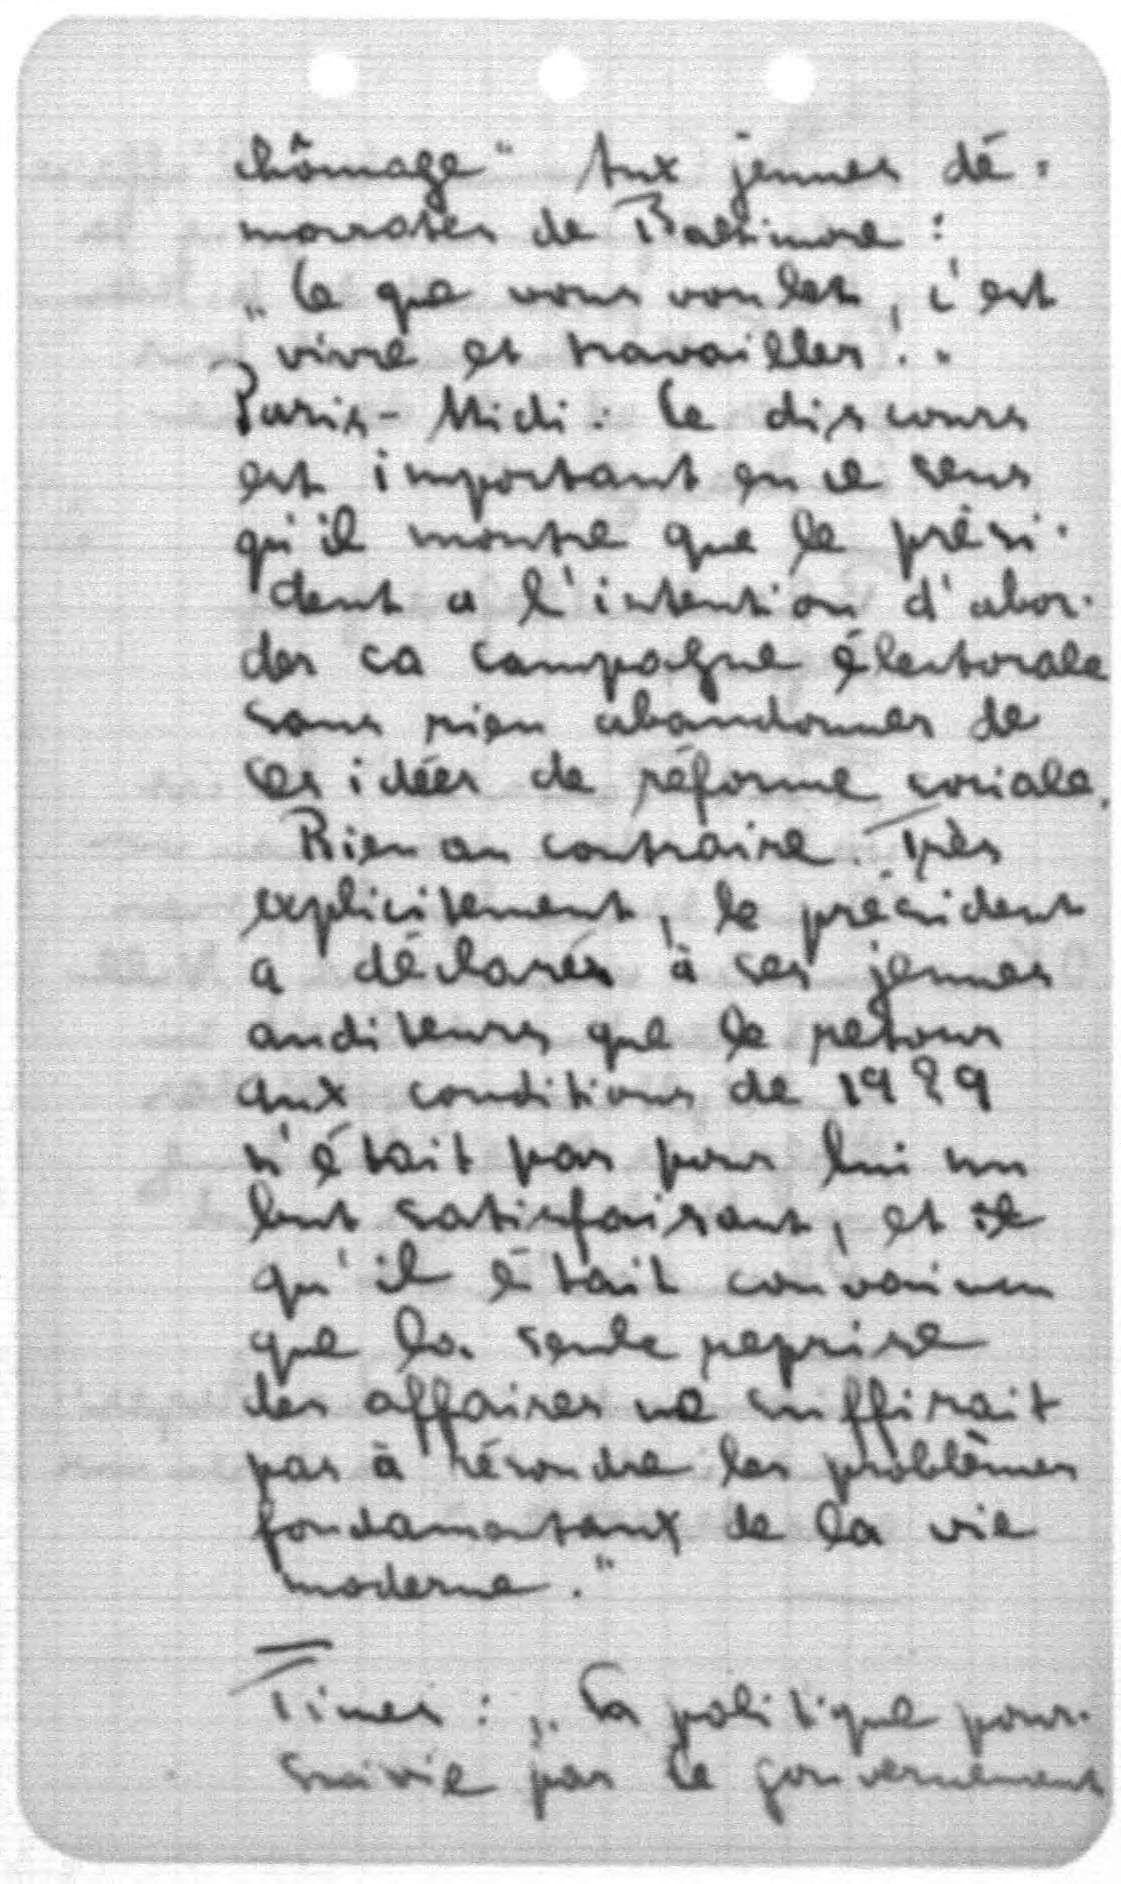 chômage" Aux jeunes dé-
mocrates de Baltimore :
„ Ce que vous voulez, c'est
vivre et travailler."
Paris-Midi : Ce discours
est important en ce sens
qu'il montre que le prési-
dent a l'intention d'abor-
der ca campagne électorale
sans rien abandonner de
ces idées de réforme sociale.
Bien au contraire. Très
explicitement, le précident
a déclarés à ses jeunes
auditeurs que le retour
aux conditions de 1929
n'était pas pour lui un
but satisfaisant, et
qu'il était convaincu
que la seule reprise
des affaires ne suffirait
pas à résoudre les problèmes
fondamentaux de la vie
moderne."
Times : „ La politique pour-
suivie par le gouvernement